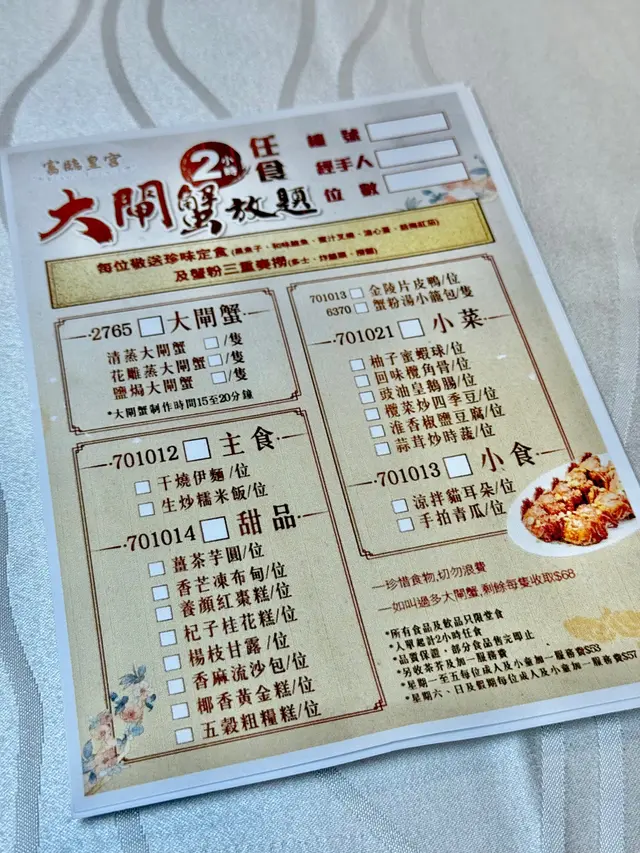 富臨皇宮
2小時
任食
大閘蟹放題
檯號
經手人
位數
每位敬送珍味定食
及蟹粉三重奏撈
2765 大閘蟹
清蒸大閘蟹 /隻
花雕蒸大閘蟹 /隻
鹽焗大閘蟹 /隻
*大閘蟹制作時間15至20分鐘
701012 主食
干燒伊麵/位
生炒糯米飯/位
701014 甜品
薑茶芋圓/位
香芒凍布甸/位
養顏紅棗糕/位
杞子桂花糕/位
楊枝甘露/位
香麻流沙包/位
椰香黃金糕/位
五穀粗糧糕/位
701013 金陵片皮鴨/位
6370 蟹粉湯小籠包/隻
701021 小菜
柚子蜜蝦球/位
回味欖角骨/位
豉油皇鵝腸/位
欖菜炒四季豆/位
淮香椒鹽豆腐/位
蒜茸炒時蔬/位
701013 小食
涼拌貓耳朵/位
手拍青瓜/位
珍惜食物,切勿浪費
如叫過多大閘蟹,剩餘每隻收取$68
*所有食品及飲品只限堂食
*入單起計2小時任食
*品質保證,部分食品售完即止
*另收茶芥及加一服務費
*星期一至五每位成人及小童加一服務費$53
*星期六、日及假期每位成人及小童加一服務費$57